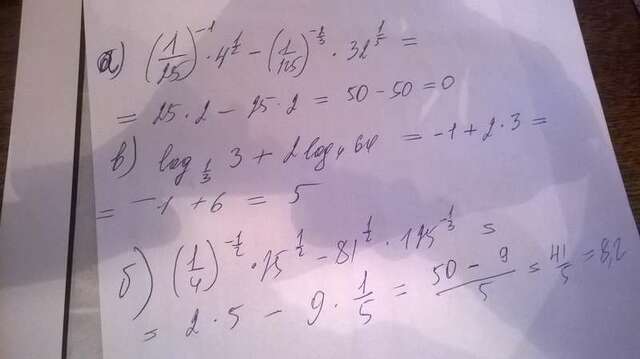 а) (1/25)^-1 · 4^1/2 - (1/125)^-1/3 · 32^1/5 =
= 25 · 2 - 25 · 2 = 50 - 50 = 0
в) log_1/3 3 + 2 log_4 64 = -1 + 2 · 3 =
= -1 + 6 = 5
б) (1/4)^-1/2 · 25^1/2 - 81^1/2 · 125^-1/3 =
= 2 · 5 - 9 · 1/5 = (50 - 9)/5 = 41/5 = 8,2